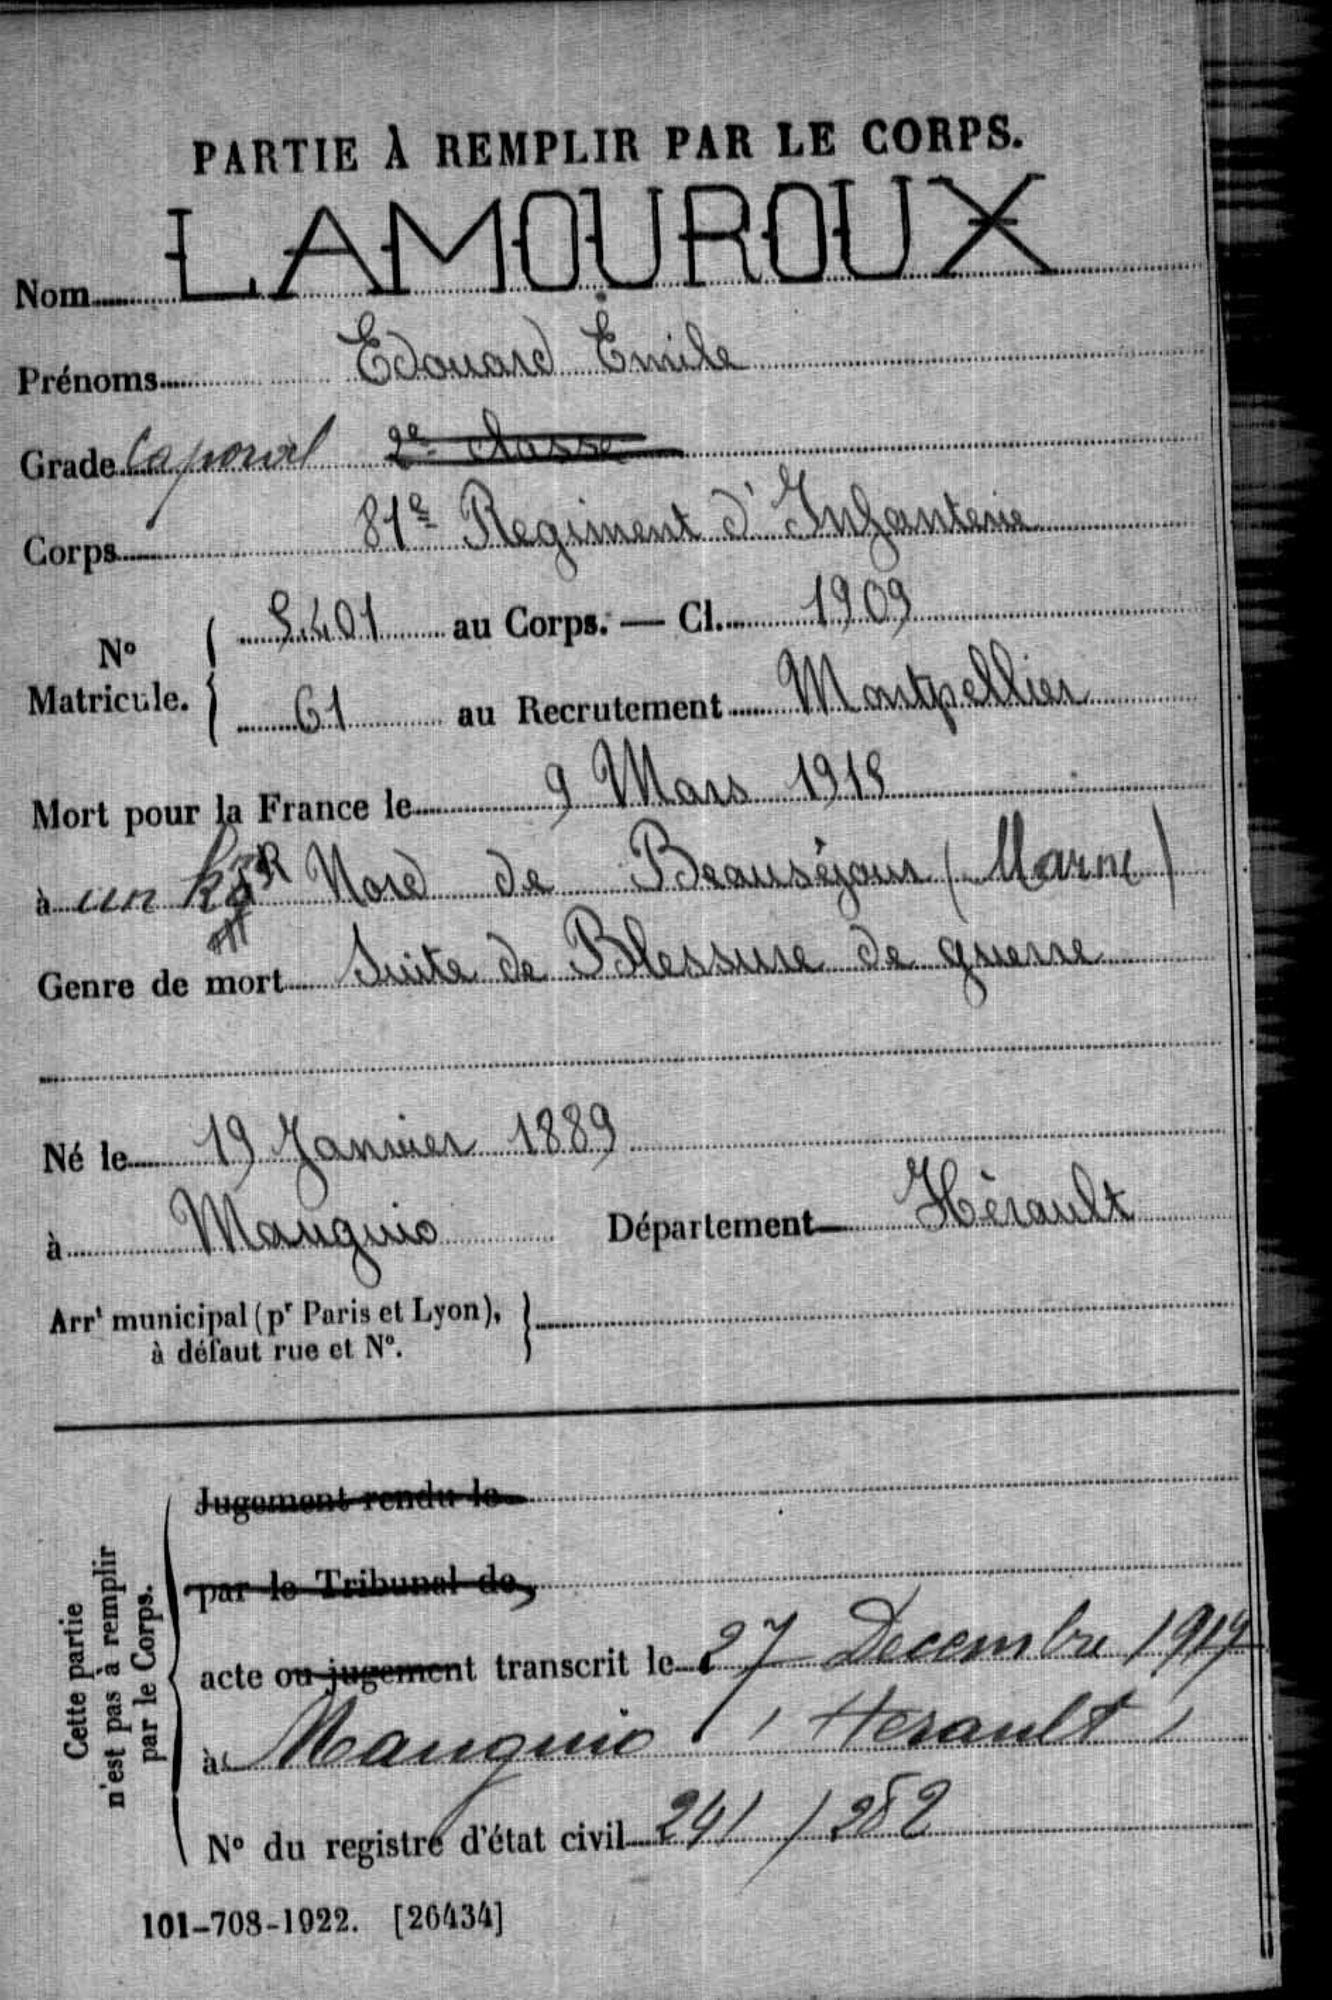 PARTIE À REMPLIR PAR LE CORPS.
Nom LAMOUROUX
Prénoms Edouard Emile
Grade Caporal 2e classe
Corps 81e Regiment d'Infanterie
N° Matricule. 5.401 au Corps. — Cl. 1909
61 au Recrutement Montpellier
Mort pour la France le 9 Mars 1915
à un Nord de Beauséjour (Marne)
Genre de mort Suite de Blessure de guerre
Né le 19 Janvier 1889
à Mauguio Département Hérault
Arrt municipal (pr Paris et Lyon),
à défaut rue et N°.
Cette partie
n'est pas à remplir
par le Corps.
Jugement rendu le
par le Tribunal de
acte ou jugement transcrit le 27 Decembre 1919
à Mauguio (Herault)
N° du registre d'état civil 241 / 252
101-708-1922. [26434]